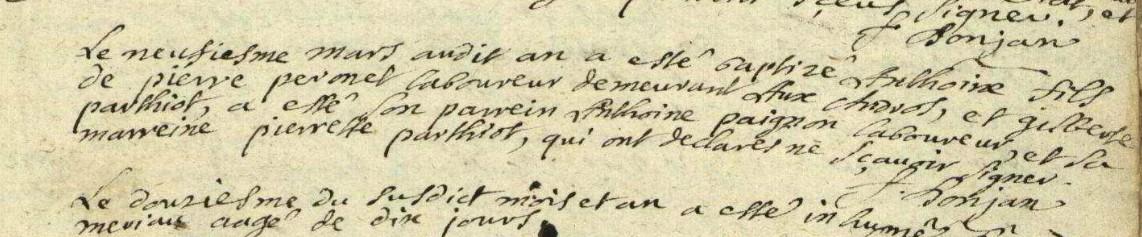 sçeus signer.
f Bonjan
Le neufiesme mars audit an a esté baptizé Anthoine fils
de pierre peronet laboureur demeurant Aux Andros, et gilberte
parthiot, a esté son parrein Anthoine paignon laboureur, et sa
marreine pierrette parthiot, qui ont declares ne sçavoir signer.
f. Bonjan
Le douziesme du susdict mois et an a esté inhumé
meriau aagé de dix jours